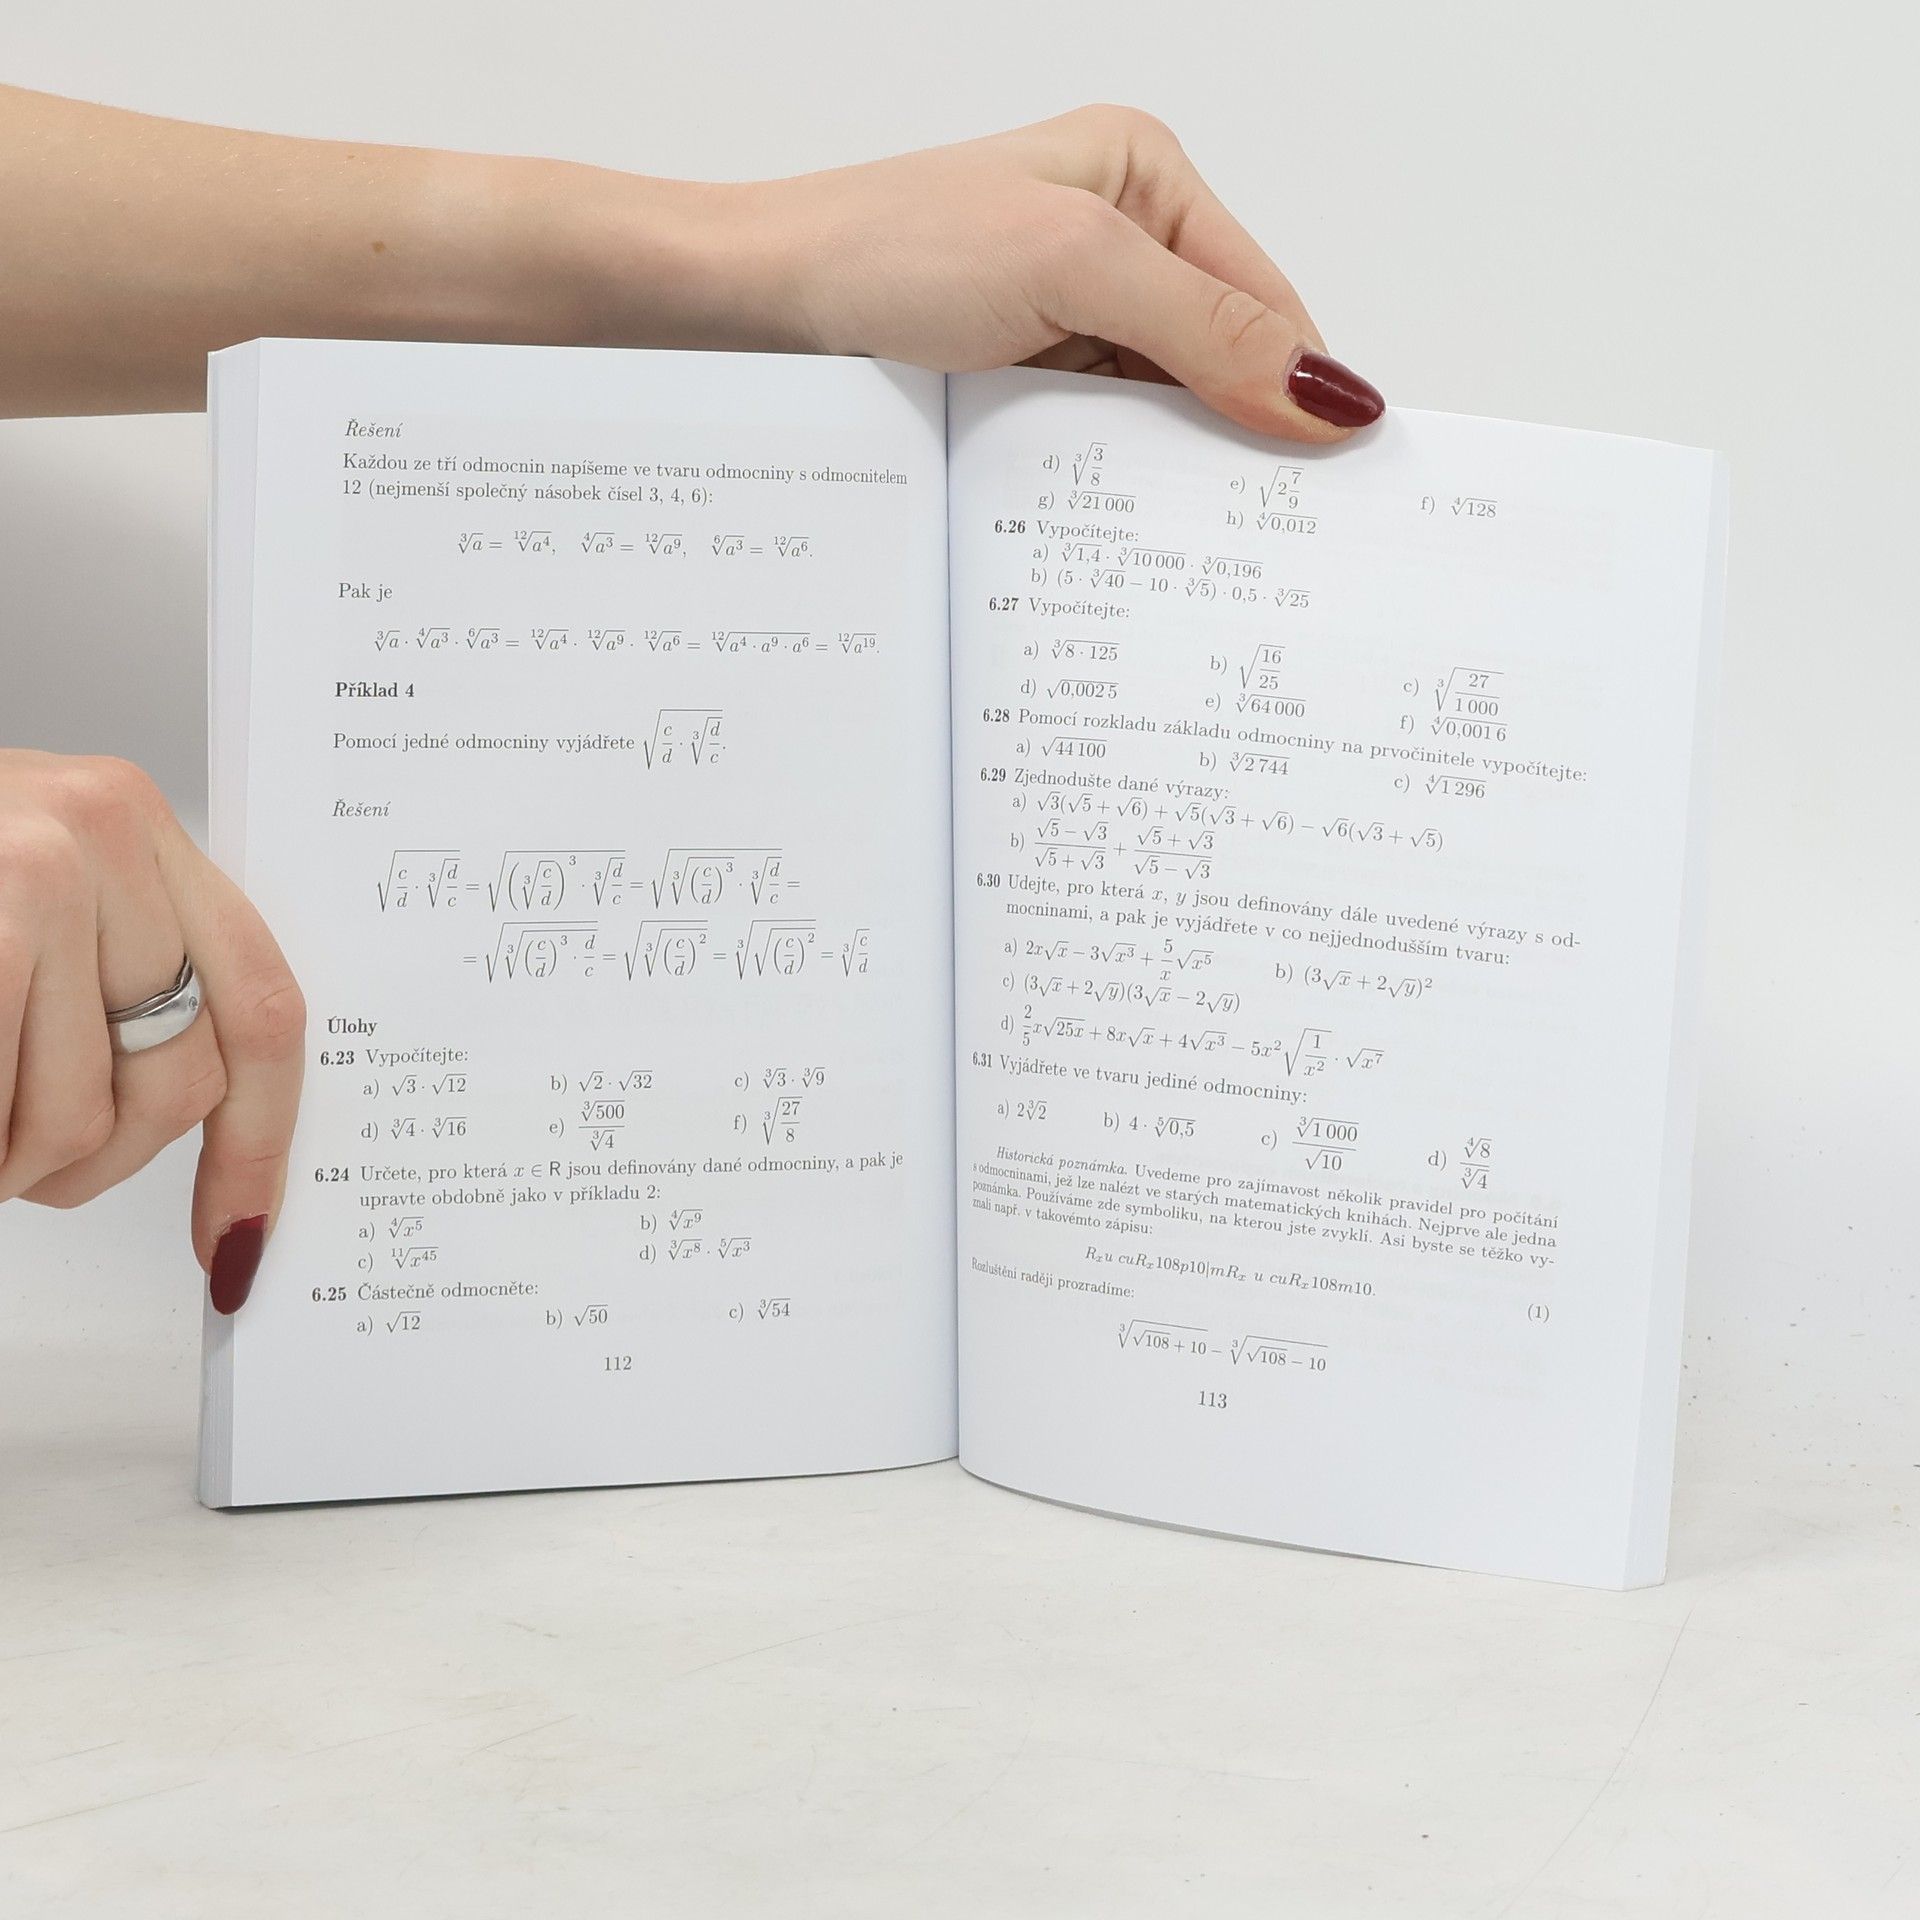 Řešení
Každou ze tří odmocnin napíšeme ve tvaru odmocniny s odmocnitelem
12 (nejmenší společný násobek čísel 3, 4, 6):
∛a = ¹²√(a⁴), ⁴√(a³) = ¹²√(a⁹), ⁶√(a³) = ¹²√(a⁶).
Pak je
∛a · ⁴√(a³) · ⁶√(a³) = ¹²√(a⁴) · ¹²√(a⁹) · ¹²√(a⁶) = ¹²√(a⁴ · a⁹ · a⁶) = ¹²√(a¹⁹).
Příklad 4
Pomocí jedné odmocniny vyjádřete √(c/d · ∛(d/c)).
Řešení
√(c/d · ∛(d/c)) = √((∛(c/d))³ · ∛(d/c)) = √(∛((c/d)³) · ∛(d/c)) =
= √(∛((c/d)³ · d/c)) = √(∛((c/d)²)) = ∛(√((c/d)²)) = ∛(c/d)
Úlohy
6.23 Vypočítejte:
a) √3 · √12 b) √2 · √32 c) ∛3 · ∛9
d) ∛4 · ∛16 e) ∛500/∛4 f) ∛(27/8)
6.24 Určete, pro která x ∈ R jsou definovány dané odmocniny, a pak je
upravte obdobně jako v příkladu 2:
a) ⁴√(x⁵) b) ⁴√(x⁹)
c) ¹¹√(x⁴⁵) d) ∛(x⁸) · ⁵√(x³)
6.25 Částečně odmocněte:
a) √12 b) √50 c) ∛54
112
d) ∛(3/8) e) √(2 7/9) f) ⁴√128
g) ∛(21 000) h) ⁴√(0,012)
6.26 Vypočítejte:
a) ∛(1,4) · ∛(10 000) · ∛(0,196)
b) (5 · ∛40 − 10 · ∛5) · 0,5 · ∛25
6.27 Vypočítejte:
a) ∛(8 · 125) b) √(16/25) c) ∛(27/1 000)
d) √(0,002 5) e) ∛(64 000) f) ⁴√(0,001 6)
6.28 Pomocí rozkladu základu odmocniny na prvočinitele vypočítejte:
a) √(44 100) b) ∛(2 744) c) ⁴√(1 296)
6.29 Zjednodušte dané výrazy:
a) √3(√5 + √6) + √5(√3 + √6) − √6(√3 + √5)
b) (√5 − √3)/(√5 + √3) + (√5 + √3)/(√5 − √3)
6.30 Udejte, pro která x, y jsou definovány dále uvedené výrazy s od-
mocninami, a pak je vyjádřete v co nejjednodušším tvaru:
a) 2x√x − 3√(x³) + 5/x √(x⁵) b) (3√x + 2√y)²
c) (3√x + 2√y)(3√x − 2√y)
d) 2/5 x√(25x) + 8x√x + 4√(x³) − 5x²√(1/x²) · √(x⁷)
6.31 Vyjádřete ve tvaru jediné odmocniny:
a) 2∛2 b) 4 · ⁵√(0,5) c) ∛(1 000)/√10 d) ⁴√8/∛4
Historická poznámka. Uvedeme pro zajímavost několik pravidel pro počítání
s odmocninami, jež lze nalézt ve starých matematických knihách. Nejprve ale jedna
poznámka. Používáme zde symboliku, na kterou jste zvyklí. Asi byste se těžko vy-
znali např. v takovémto zápisu:
Rₓu cuRₓ108p10|mRₓ u cuRₓ108m10. (1)
Rozluštění raději prozradíme:
∛(√108 + 10) − ∛(√108 − 10)
113